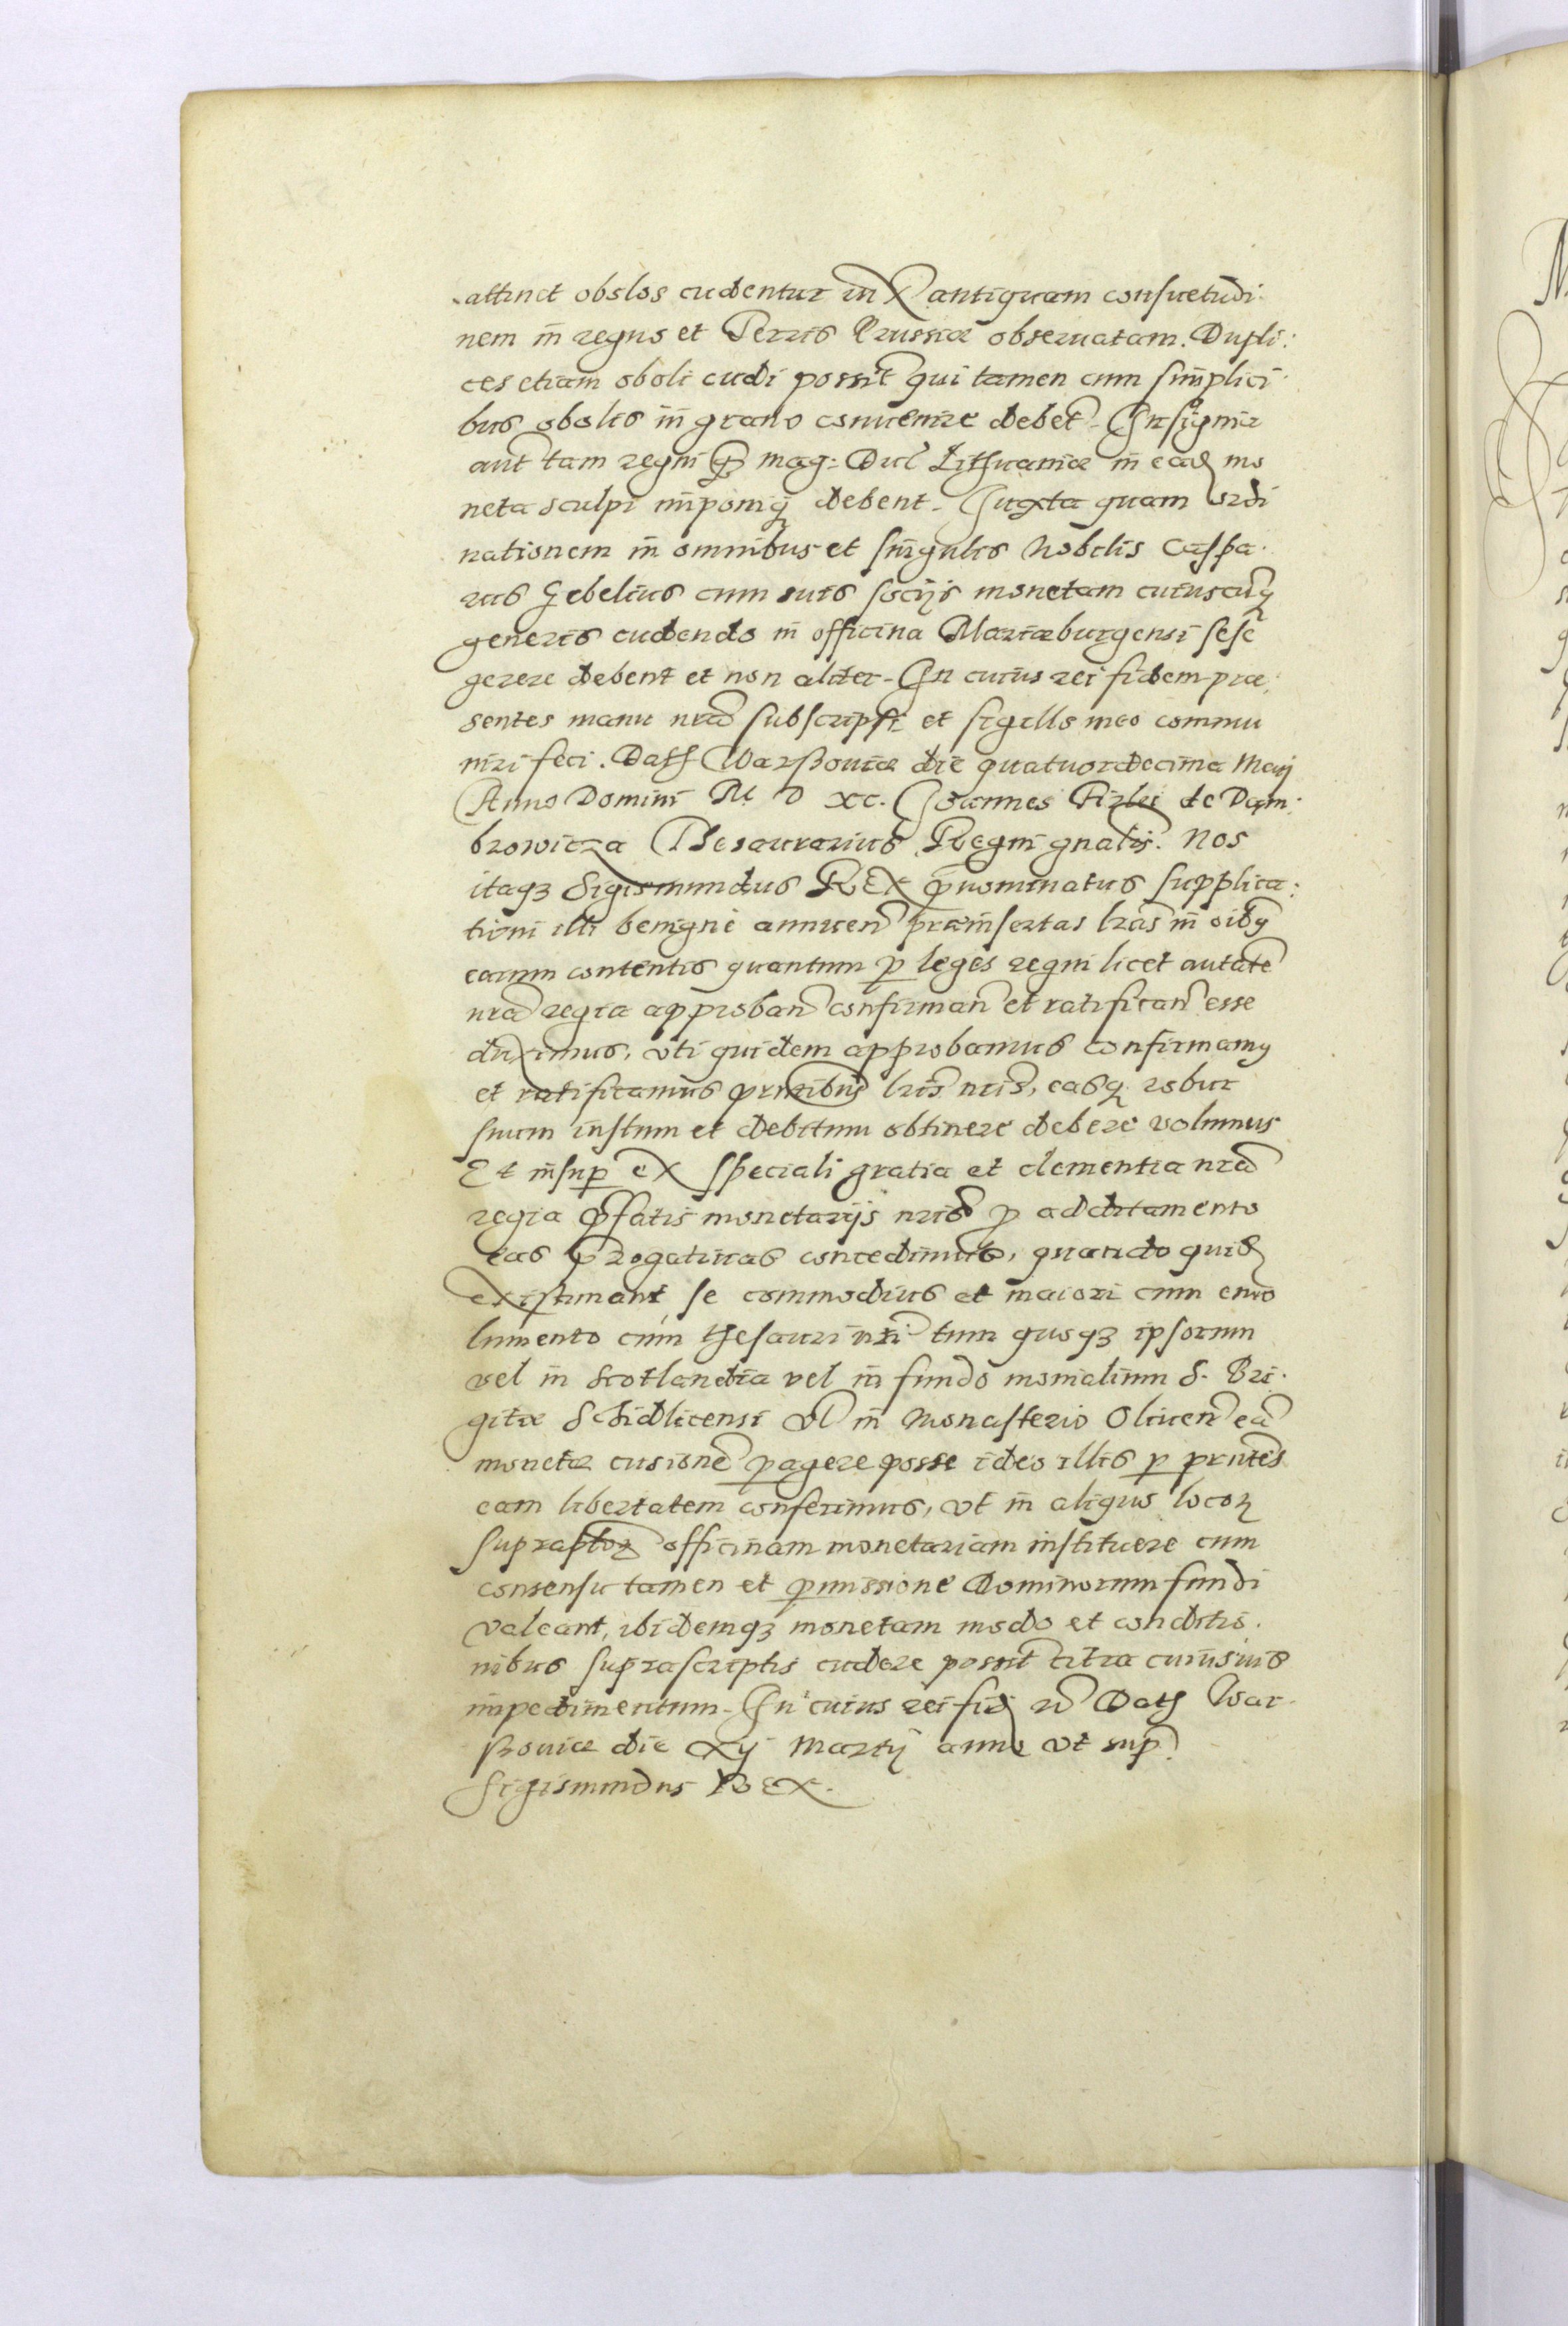 attinet obolos cudentur iux antiquam consuetudi:
nem in regno et Terris Prussiæ obseruatam. Dupli:
ces etiam oboli cudi possīt qui tamen cum simplici
bus obolis in grano conuenire debēt. Insignia
aut tam regni q̃ mag: Duc Lithuaniæ in eadē mo
neta sculpi imponiq̃ debent. Juxta quam ordi
nationem in omnibus et singulis Nobilis Caspa.
rus Gebelius cum suis socijs monetam cuiuscūq̃
generis cudendo in officina Mariæburgensi sese
gerere debent et non aliter. In cuius rei fidem præ:
sentes manu mea subscripsi et sigillo meo commu
niri feci. Datt Warßouiæ die quatuordecima Maij
Anno Domini M D XC. Joannes Firlei de Dam:
browicza Thesaurarius Regni gnalis. Nos
itaqꝫ Sigismundus REX p̃nominatus supplica:
tioni illi benigne annuen præinsertas lr̃as in oibꝰ
earum contentis quantum ꝑ leges regni licet autate
nr̃a regia approban confirman et ratifican esse
duximus, vti quidem approbamus confirmamꝰ
et ratificamus pñtibus lr̃is nr̃is, easq̃ robur
suum iustum et debitum obtinere debere volumus
Et insuꝑ ex speciali gratia et clementia nr̃a
regia p̃fatis monetarijs nr̃is ꝓ additamento
eas p̃rogatiuas concedimus, quando quidē
existimant se commodius et maiori cum emo
lumento cum thesauri nr̃i tum quoqꝫ ipsorum
vel in Scotlandia vel in fundo monialium S. Bri.
gitæ Schidlicensi vl in Monasterio Oliuen eā
monetæ cusionē ꝑagere posse ideo illis ꝑ pñtes
eam libertatem conferimus, vt in aliquo locoꝝ
supraptoꝝ officinam monetariam instituere cum
consensu tamen et ꝑmissione Dominorum fundi
valeant, ibidemqꝫ monetam modo et conditio.
nibus suprascriptis cudere possīt citra cuiusuis
impedimentum. In cuius rei fidē rc̃ Datt War.
ßouiæ die xij Martij anno vt sup
Sigismundus REX.